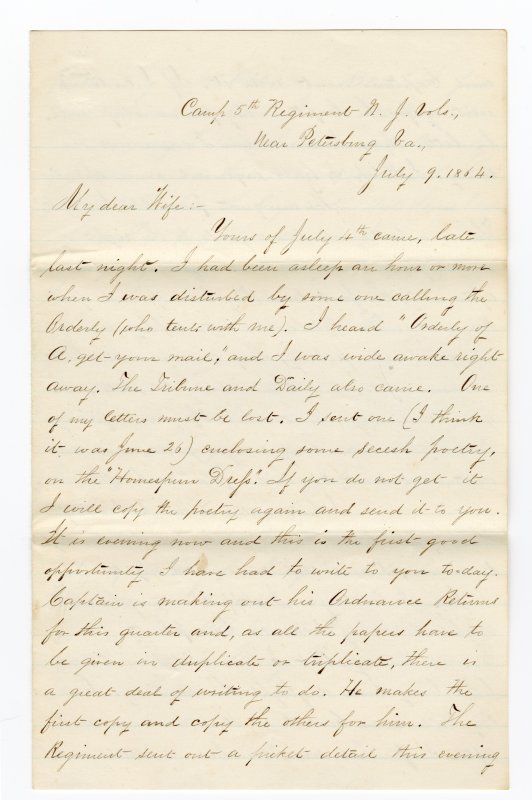 Camp 5th Regiment N. J. Vols.,
Near Petersburg Va.,
July 9. 1864.
My dear Wife:-
Yours of July 4th came, late
last night. I had been asleep an hour or more
when I was disturbed by some one calling the
Orderly (who tents with me). I heard "Orderly of
A, get your mail," and I was wide awake right
away. The Tribune and Daily also came. One
of my letters must be lost. I sent one (I think
it was June 26) enclosing some secesh poetry,
on the "Homespun Dress." If you do not get it
I will copy the poetry again and send it to you.
It is evening now and this is the first good
opportunity I have had to write to you to-day.
Captain is making out his Ordnance Returns
for this quarter and, as all the papers have to
be given in duplicate or triplicate, there is
a great deal of writing to do. He makes the
first copy and copy the others for him. The
Regiment sent out a picket detail this evening